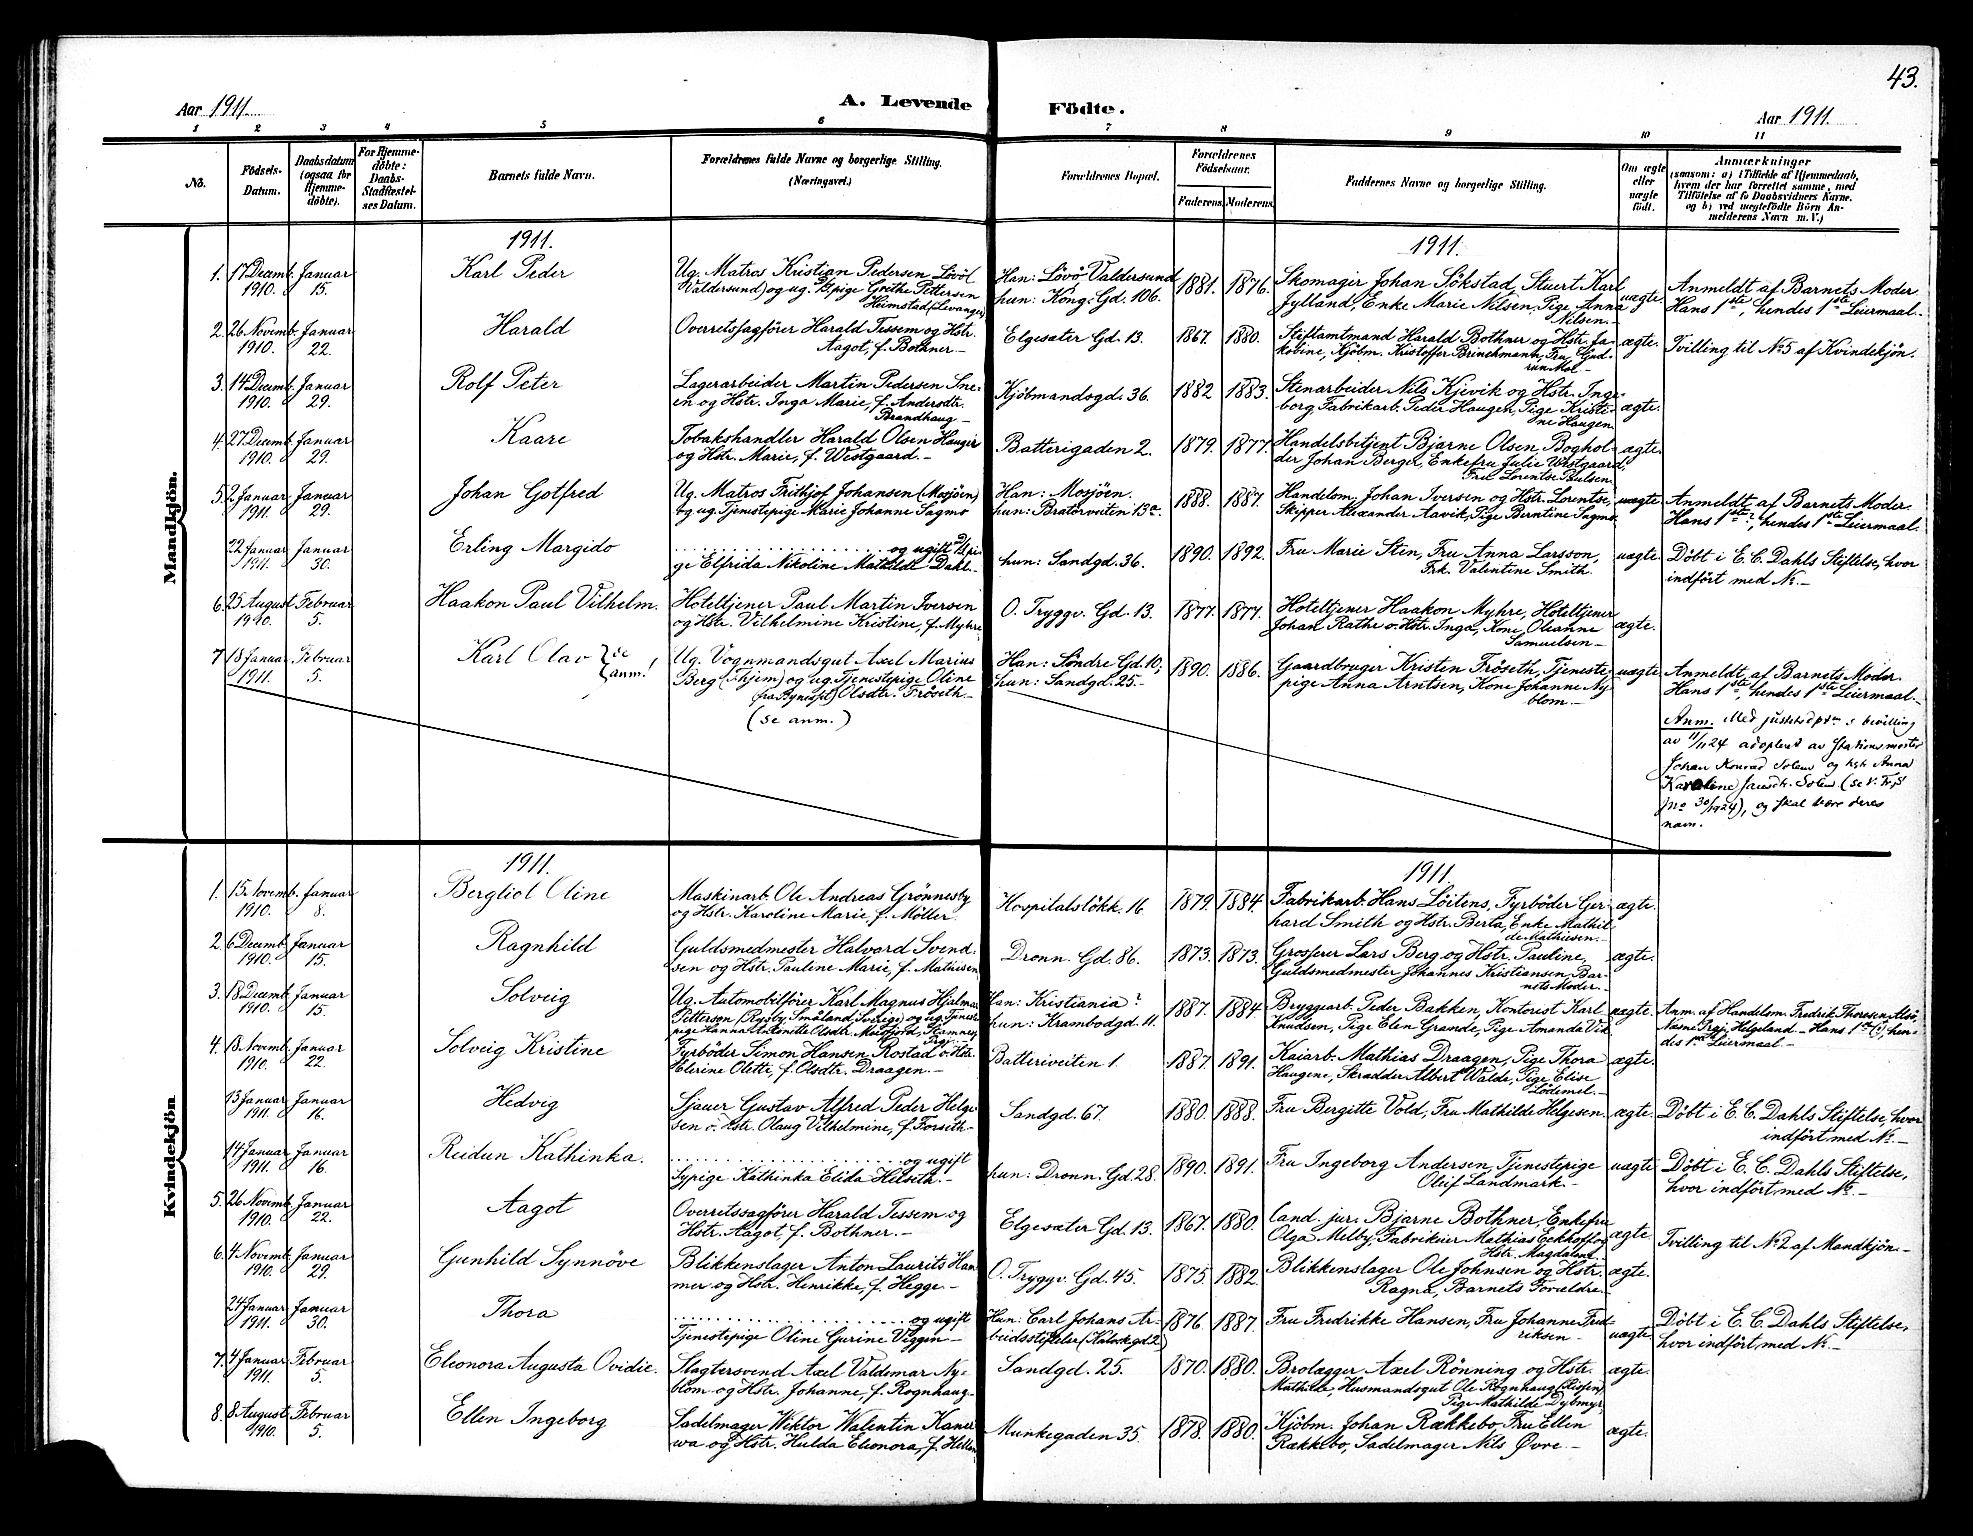 43.
Aar 1911. A. Levende Födte. Aar 1911.
1 2 3 4 5 6 7 8 9 10 11
No.
Födsels-
Datum.
Daabsdatum
(ogsaa for
Hjemme-
döbte).
For Hjemme-
döbte:
Daabs-
Stadfæstel-
ses Datum.
Barnets fulde Navn.
Forældrenes fulde Navne og borgerlige Stilling.
(Næringsvei.)
Forældrenes Bopæl.
Forældrenes
Födselsaar.
Faderens. Moderens.
Faddernes Navne og borgerlige Stilling.
Om ægte
eller
uægte
födt.
Anmærkninger
(saasom: a) i Tilfælde af Hjemmedaab,
hvem der har forrettet samme, med
Tilföielse af to Daabsvidners Navne.
og b) ved uægtefödte Börn An-
melderens Navn m. V.)
Mandkjön.
1911. 1911.
1. 17 Decemb. 1910. Januar 15. Karl Peder
Ug. Matros Kristian Pedersen Lövöl
Valdersund) og ug. Tj.pige Grethe Pettersen
Heimstad (Levanger)
Han: Lövö Valdersund
hun: Kong. Gd. 106.
1881. 1876.
Skomager Johan Sökstad, Stuert Karl
Jylland, Enke Marie Nilsen, Pige Anna
Nilsen.
uægte.
Anmeldt af Barnets Moder
Hans 1ste, hendes 1ste Leiermaal.
2. 26 Novemb. 1910. Januar 22. Harald
Overretssagförer Harald Tessem og Hstr.
Aagot, f. Bothner
Elgesæter Gd. 13.
1867. 1880.
Stiftamtmand Harald Bothner og Hstr. Ja-
kobine, Kjöbm. Kristoffer Brinchmann, Fru Gud-
run
ægte.
Tvilling til No 5 af Kvindekjön.
3. 14 Decemb. 1910. Januar 29. Rolf Peter
Lagerarbeider Martin Pedersen Sne-
en og Hstr. Inga Marie, f. Andersdtr.
Brandhaug
Kjöbmandsgd. 36.
1882 1883.
Stenarbeider Nils Kjevik og Hstr. Inge-
borg, Fabrikarb. Peder Haugen, Pige Kristi-
ne Haugen
ægte.
4. 27 Decemb. 1910. Januar 29. Kaare
Tobakshandler Harald Olsen Hauger
og Hstr. Marie, f. Westgaard.
Batterigaden 2.
1879. 1877.
Handelsbetjent Bjarne Olsen, Boghol-
der Johan Berger, Enkefru Julie Westgaard,
Fru Lorentse Paulsen
ægte.
5. 2 Januar 1911. Januar 29. Johan Gotfred
Ug. Matros Frithjof Johansen (Mosjöen)
og ug. Tjenestepige Marie Johanne Sagmo
Han: Mosjöen.
hun: Bratörveiten 13a.
1888. 1887.
Handelsm. Johan Iversen og Hstr. Lorentse,
Skipper Alexander Aavik, Pige Berntine Sagmo
uægte
Anmeldt af Barnets Moder.
Hans 1ste?, hendes 1ste Leiermaal.
22 Januar 1911. Januar 30. Erling Margido
og ugift Tj.pi-
ge Elfrida Nikoline Mathilde Dahl.
hun: Sandgd. 36.
1890. 1892.
Fru Marie Stin, Fru Anna Larsson,
Frk. Valentine Smith.
uægte.
Döbt i E. C. Dahls Stiftelse, hvor
indfört med No.
6. 25 August 1910. Februar 5. Haakon Paul Vilhelm.
Hoteltjener Paul Martin Iversen
og Hstr. Vilhelmine Kristine, f. Myhre
O. Tryggv. Gd. 13.
1877. 1877.
Hoteltjener Haakon Myhre, Hoteltjener
Johan Rathe o. Hstr. Inga, Kone Oleanne
Samuelsen
ægte.
7 18 Januar 1911. Februar 5. Karl Olav } se anm!
Ug. Vognmandsgut Axel Marius
Berg (Thjem) og ug. Tjenestepige Oline
(fra Bynesset) Olsdtr. Fröseth.
(se anm.)
Han: Söndre Gd. 10,
hun: Sandgd. 25.
1890. 1886.
Gaardbruger Kristen Fröseth, Tjeneste-
pige Anna Arntsen, Kone Johanne Ny-
blom.
uægte.
Anmeldt af Barnets Moder.
Hans 1ste, hendes 1ste Leiermaal.
Anm. Med justitsdptm s bevilling
av 11/11 24 adoptert av Stationsmester
Johan Konrad Solem og hst. Anna
Karoline Solem. (se
No 30/1924), og skal bære deres
navn.
Kvindekjön
1911. 1911.
1. 15. Novemb. 1910. Januar 8. Bergliot Oline
Maskinarb. Ole Andreas Grönnesby
og Hstr. Karoline Marie f. Möller
Hospitalslökk. 16
1879. 1884.
Fabrikarb. Hans Löitens, Fyrböder Ger-
hard Smith og Hstr. Berta, Enke Mathil-
de Mathiesen.
ægte.
2. 6 Decemb. 1910. Januar 15. Ragnhild
Guldsmedmester Halvard Svend-
sen og Hstr. Pauline Marie, f. Mathisen
Dronn. Gd. 86.
1873. 1873.
Grosserer Lars Berg og Hstr. Pauline,
Guldsmedmester Johannes Kristiansen, Bar-
nets Moder.
ægte.
3. 18 Decemb. 1910. Januar 15. Solveig
Ug. Automobilförer Karl Magnus Hjalmar
Pettersen (Rysby, Småland, Sverige) og ug. Tjeneste-
pige Hanna Antonette Olsdtr. Meisfjord, Stamnes Prgj.
Han: Kristiania?
hun: Krambodgd. 11.
1887. 1884
Bryggearb. Peder Bakken, Kontorist Karl
Knudsen, Pige Elen Grande, Pige Amanda Vik
uægte.
Anm. af Handelsm. Fredrik Thoresen Alsö,
Næsne Prgj. Helgeland. Hans 1ste (?), hen-
des 1ste Leiermaal.
4. 18 Novemb. 1910. Januar 22. Solveig Kristine
Fyrböder Simon Hansen Rostad o. Hstr.
Elerine Olette, f. Olsdtr. Draagen.
Batteriveiten 1.
1887. 1891.
Kaiarb. Mathias Draagen, Pige Thora
Haugene, Skrædder Albert Walde, Pige Elise
Lödemel.
ægte.
13 Januar 1911. Januar 16. Hedvig
Sjauer Gustav Alfred Peder Helge-
sen o. Hstr. Olaug Vilhelmine, f. Forseth
Sandgd. 67.
1880. 1888.
Fru Bergitte Vold, Fru Mathilde Helgesen.
ægte.
Döbt i E. C. Dahls Stiftelse, hvor
indfört med No.
14 Januar 1911. Januar 16. Reidun Kathinka.
og ugift
Sypige Kathinka Elida Helseth.
hun: Dronn. Gd. 28.
1890. 1891.
Fru Ingeborg Andersen, Tjenestepige
Oleif Landmark.
uægte
Döbt i E. C. Dahls Stiftelse,
hvor indfört med No.
5. 26 Novemb. 1910. Januar 22. Aagot
Overretssagförer Harald Tessem og
Hstr. Aagot, f. Bothner.
Elgesæter Gd. 13.
1867. 1880.
Cand. jur. Bjarne Bothner, Enkefru
Olga Melby, Fabrikeier Mathias Eckhoff og
Hstr. Magdalene
ægte
Tvilling til No 2 af Mandkjön.
6. 4 Novemb. 1910. Januar 29. Gunhild Synnöve
Blikkenslager Anton Laurits Ham-
mer og Hstr. Henrikke, f. Hegge.
O. Tryggv. Gd. 45.
1875. 1882.
Blikkenslager Ole Johnsen og Hstr.
Ragna, Barnets Forældre.
ægte.
24 Januar 1911. Januar 30. Thora
og ugift
Tjenestepige Oline Gurine Viggen
Hun: Carl Johans Ar-
beidsstiftelse (Kalvsk.gd. 2)
1876. 1887.
Fru Fredrikke Hansen, Fru Johanne Fred-
riksen
uægte
Döbt i E. C. Dahls Stiftelse,
hvor indfört med No.
7. 4 Januar 1911. Februar 5. Eleonora Augusta Ovidie.
Slagtersvend Axel Valdemar Ny-
blom og Hstr. Johanne, f. Rognhaug
Sandgd. 25.
1870. 1880.
Brolægger Axel Rönning og Hstr.
Mathilde, Husmandsgut Ole Rognhaug (Rissen),
Pige Mathilde Dybmyr,
ægte.
8. 8 August 1910. Februar 5. Ellen Ingeborg
Sadelmager Wiktor Walentin Kaner-
wa og Hstr. Hulda Eleonora, f. Hellen
Munkegaden 35.
1878. 1880.
Kjöbm. Johan Rækkebo, Fru Ellen
Rækkebo, Sadelmager Nils Øvre
ægte.